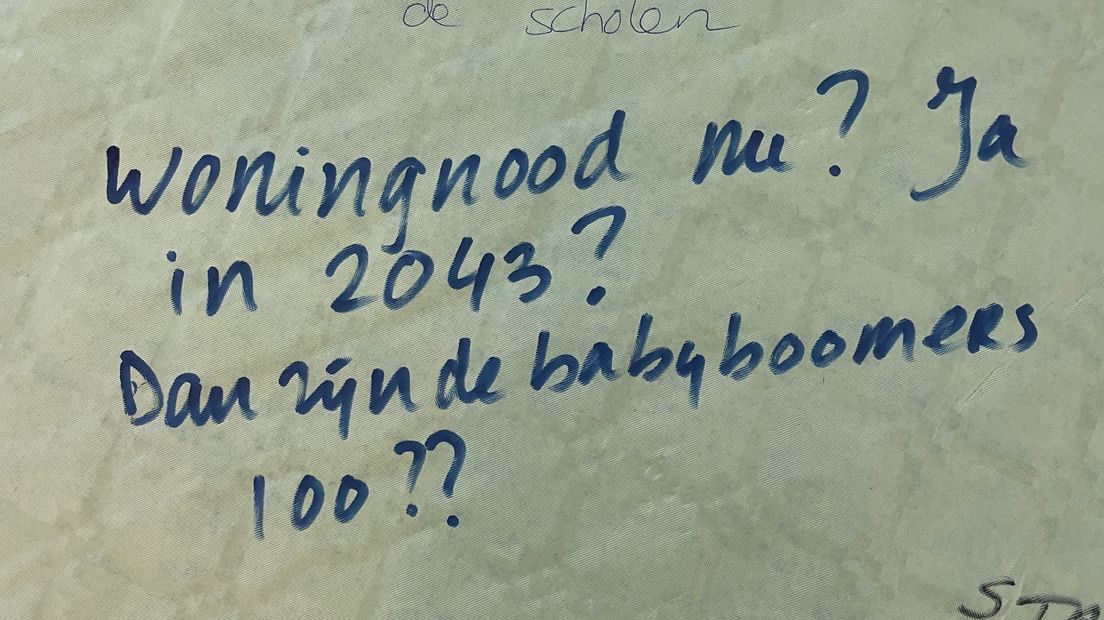 de scholen
Woningnood nu? Ja
in 2043?
Dan zijn de babyboomers
100??